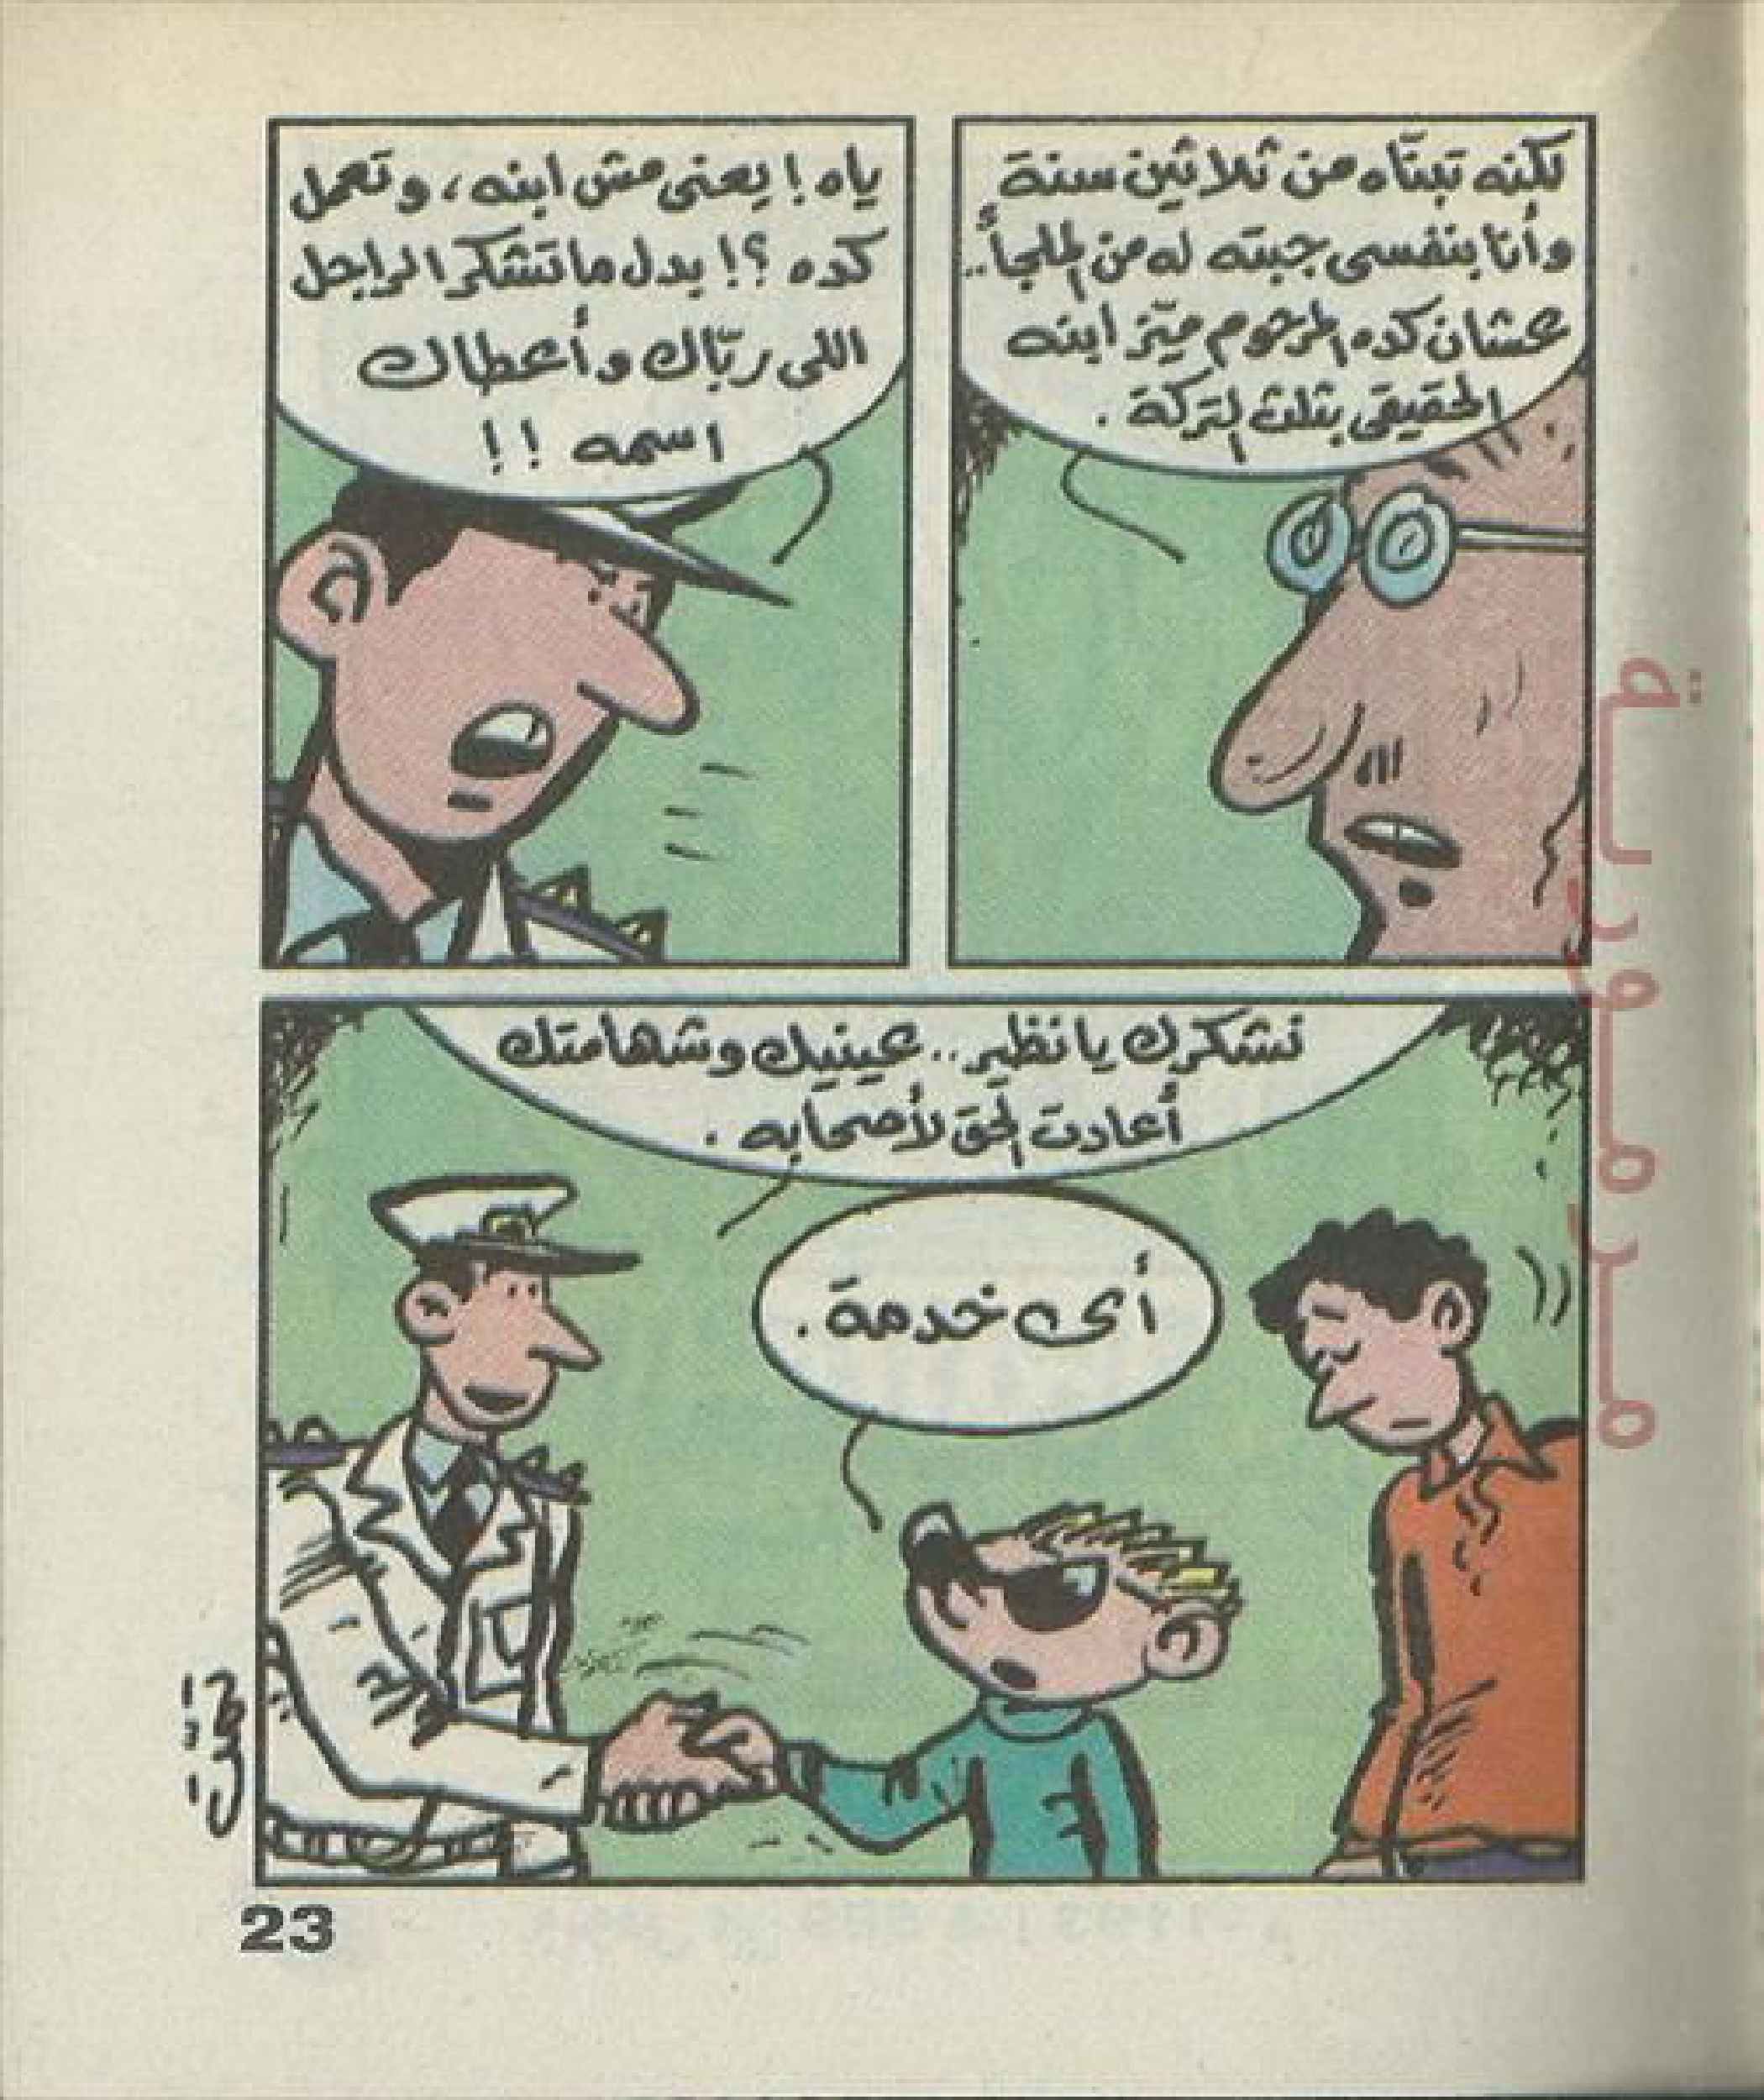 لكنه تبنّاه من ثلاثين سنة
وأنا بنفسى جبته له من الملجأ..
عشان كده المرحوم ميّز ابنه
الحقيقى بثلث التركة.
ياه! يعنى مش ابنه، وتعمل
كده؟! بدل ما تشكر الراجل
اللى ربّاك وأعطاك
اسمه!!
نشكرك يا نظير.. عينيك وشهامتك
أعادت الحق لأصحابه.
أى خدمة.
23